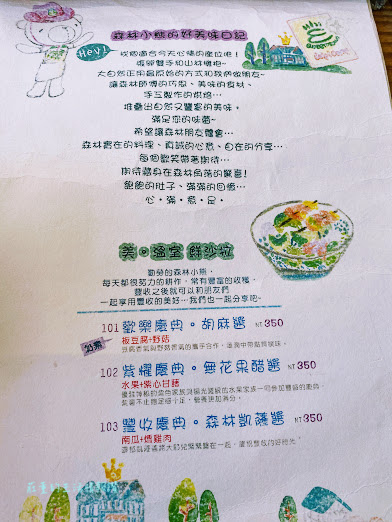 森林小熊的好美味日記
Hey!
挑個適合今天心情的座位吧!
張開雙手和山林擁抱~
大自然正用最原始的方式和我們做朋友~
讓森林師傅的巧思、美味的食材、
手工製作的烘焙…
堆疊出自然又豐富的美味,
滿足您的味蕾~
希望讓森林朋友體會…
森林實在的料理、真誠的心意、自在的分享…
每個歡笑帶著期待…
期待藏身在森林角落的驚喜!
飽飽的肚子、滿滿的回憶…
心・滿・意・足・
美・溫室 鮮沙拉
勤勞的森林小熊,
每天都很努力的耕作,常有豐富的收穫,
豐收之後就可以和朋友們
一起享用豐收的美好…我們也一起分享吧~
101 歡樂慶典・胡麻醬 NT 350
奶素
板豆腐+野菇
102 紫耀慶典・無花果醋醬 NT 350
水果+紫心甘藷
103 豐收慶典・森林凱薩醬 NT 350
南瓜+燻雞肉